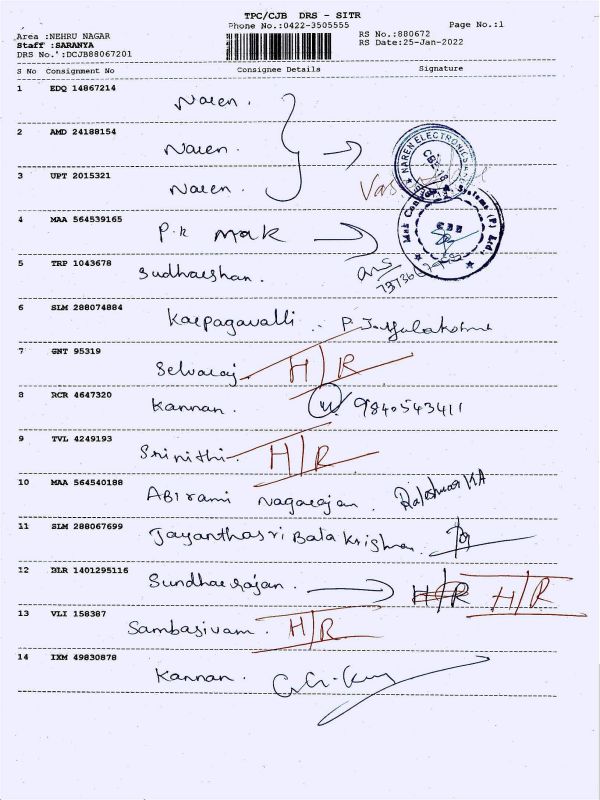 TPC/CJB DRS - SITR
Phone No.:0422-3505555
Page No.:1
Area :NEHRU NAGAR
Staff :SARANYA
DRS No.:DCJB88067201
RS No.:880672
RS Date:25-Jan-2022
S No Consignment No Consignee Details Signature
1 EDQ 14867214
Naren.
2 AMD 24188154
Naren.
3 UPT 2015321
Naren.
NAREN ELECTRONICS
4 MAA 564539165
P.R mak
Systems (P) Ltd.
5 TRP 1043678
Sudharshan.
6 SLM 288074884
Karpagavalli
7 GNT 95319
Selvaraj H/R
8 RCR 4647320
Kannan. 9840543411
9 TVL 4249193
Srinithi. H/R
10 MAA 564540188
Abirami Nagarajan.
11 SLM 288067699
Jayanthasri Bala Krishnan
12 BLR 1401295116
Sundharrajan. H/R H/R
13 VLI 158387
Sambasivam. H/R
14 IXM 49830878
Kannan.